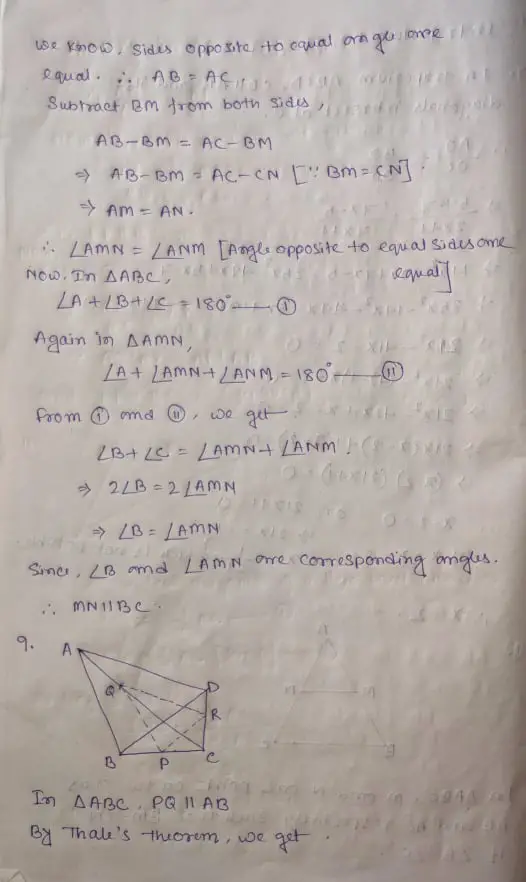 We know, sides opposite to equal angle are
equal. ∴ AB = AC.
Subtract BM from both sides,
AB - BM = AC - BM
⇒ AB - BM = AC - CN [∵ BM = CN]
⇒ AM = AN.
∴ ∠AMN = ∠ANM [Angle opposite to equal sides are
equal]
Now. In ΔABC,
∠A + ∠B + ∠C = 180° — (I)
Again in ΔAMN,
∠A + ∠AMN + ∠ANM = 180° — (II)
From (I) and (II), we get
∠B + ∠C = ∠AMN + ∠ANM.
⇒ 2∠B = 2∠AMN
⇒ ∠B = ∠AMN
Since, ∠B and ∠AMN are corresponding angles.
∴ MN || BC.
9.
A
Q D
R
B P C
In ΔABC, PQ || AB
By Thale's theorem, we get.